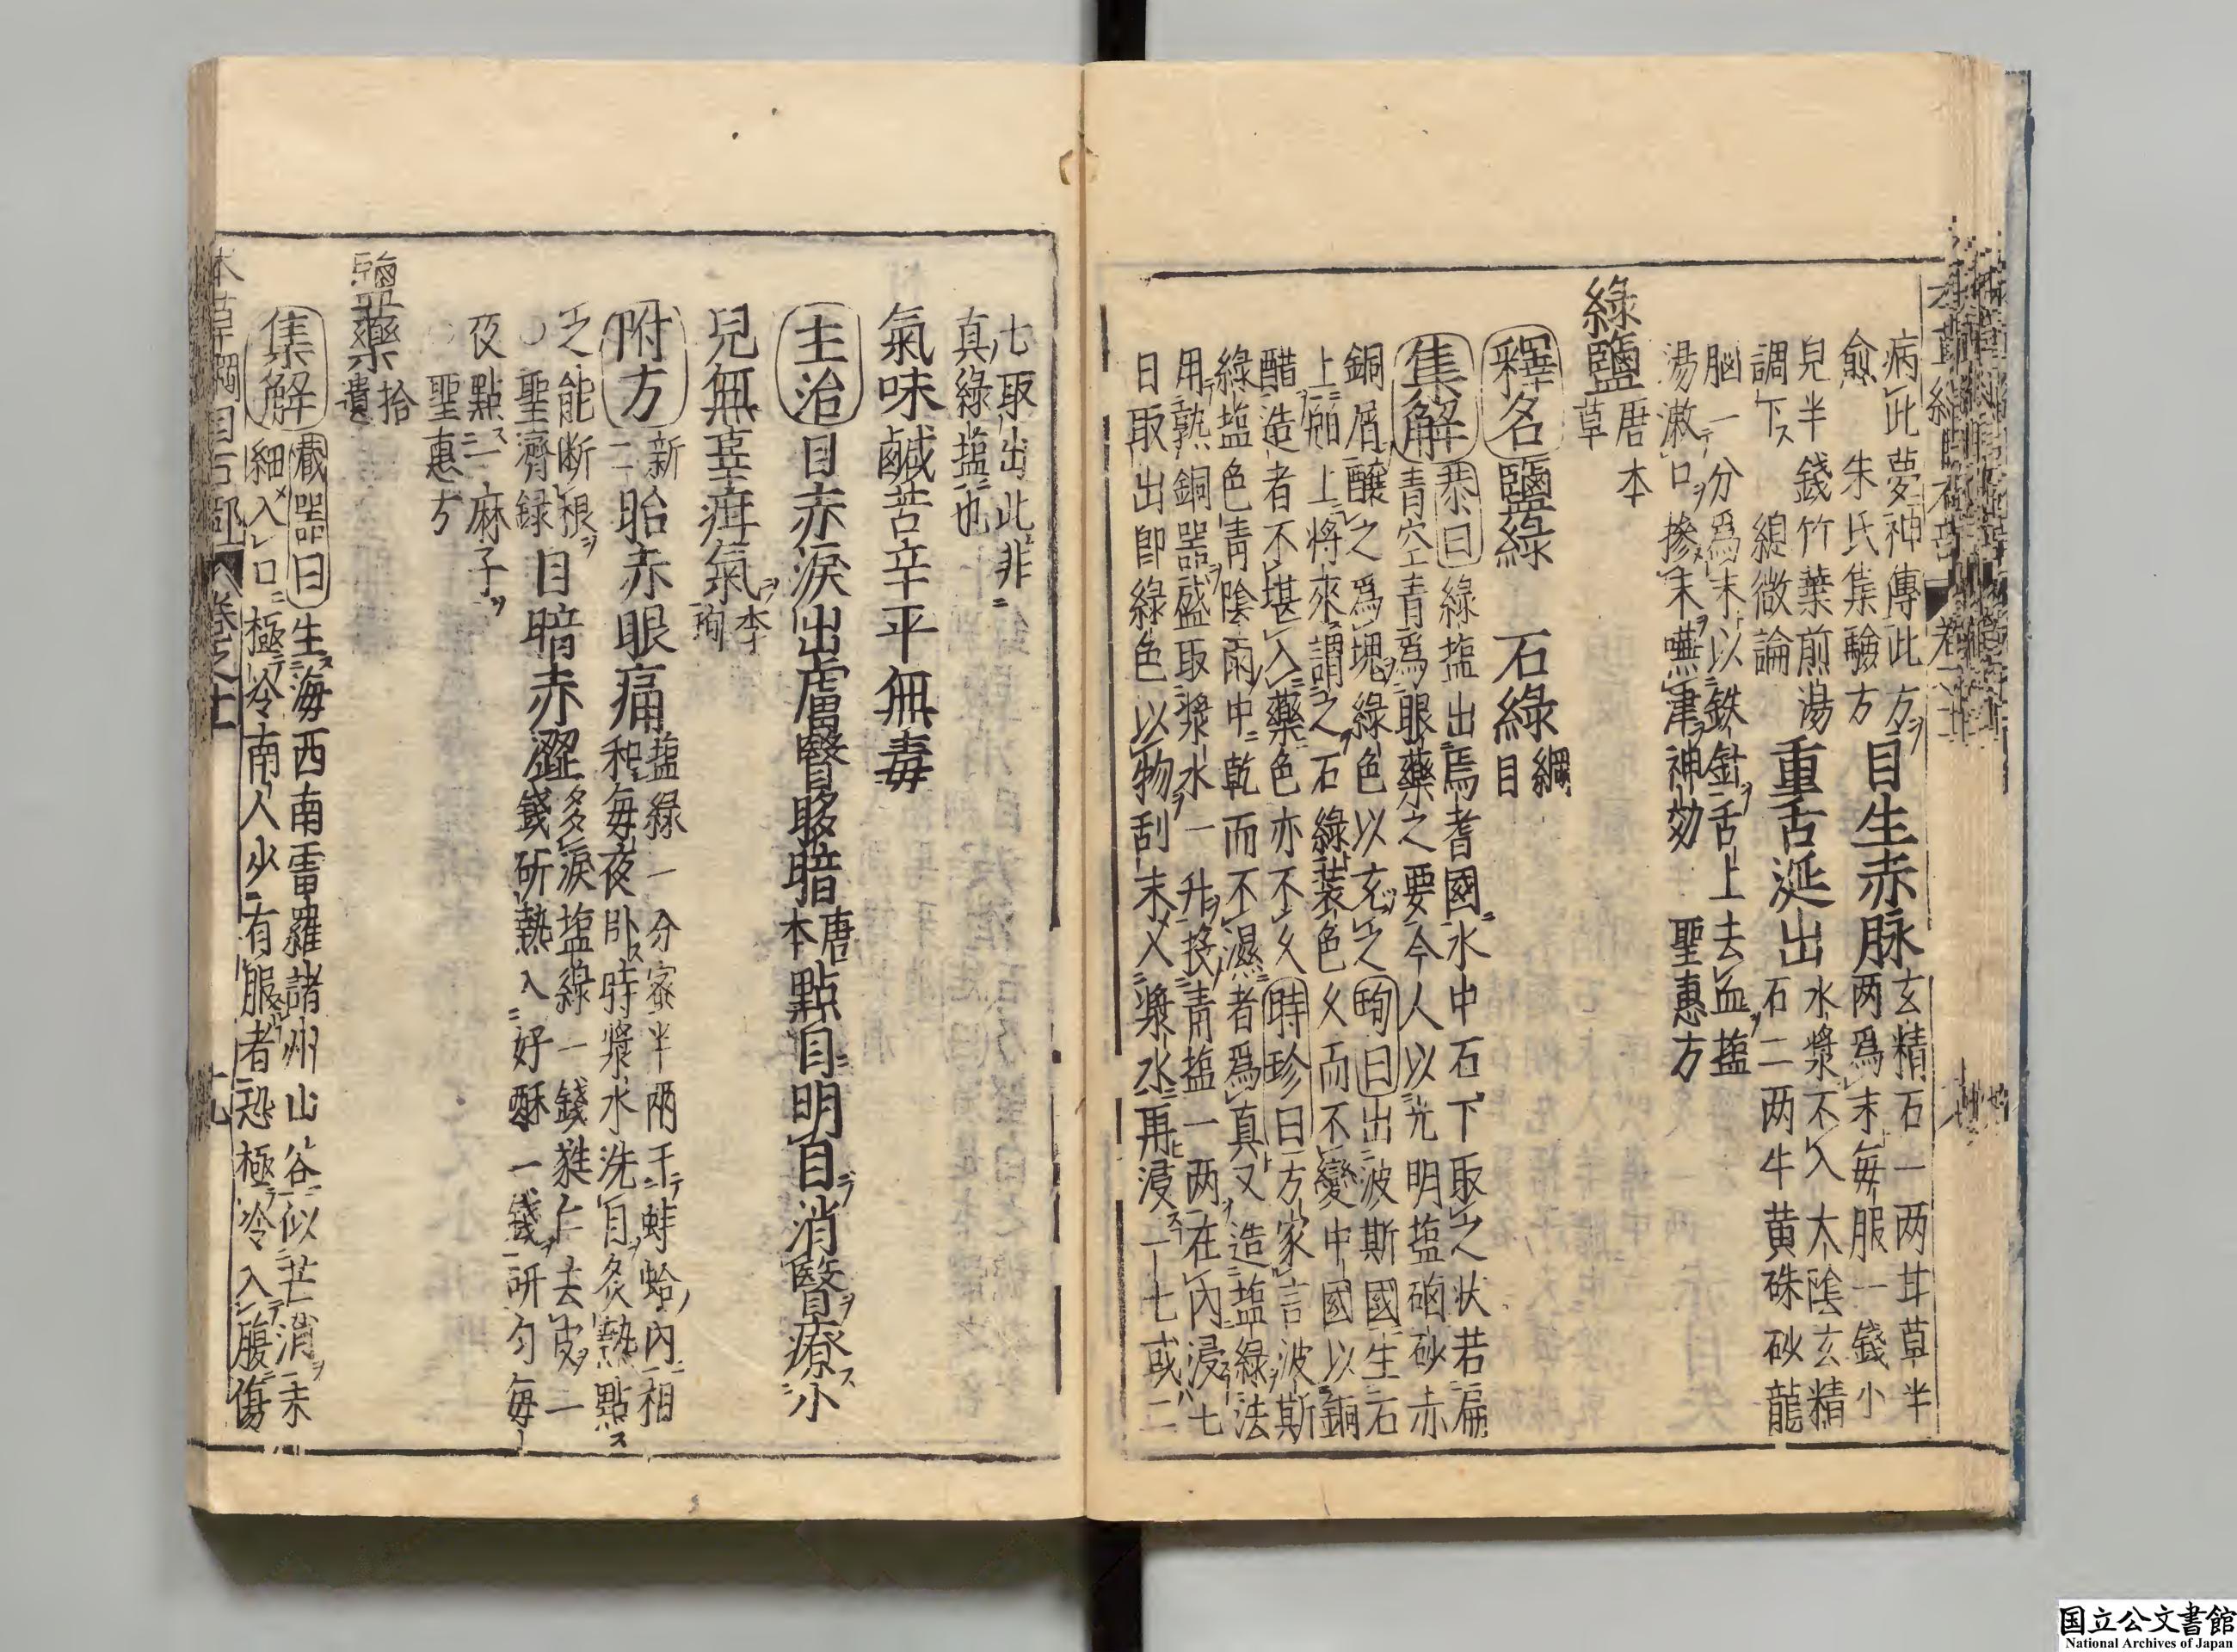 病此夢神傳此方
愈 朱氏集驗方
目生赤脉
玄精石一两甘草半
两爲末毎服一錢小
兒半錢竹葉煎湯
調下 總微論
重舌涎出
水漿不入太陰玄精
石二两牛黄硃砂龍
脳一分爲末以鉄針舌上去血塩
湯漱口摻末嚥津神効 聖惠方
綠鹽 唐本草
釋名 鹽綠 石綠 綱目
集解
恭曰綠塩出焉耆國水中石下取之状若扁
青空青爲眼藥之要今人以光明塩硇砂赤
銅屑釀之爲塊綠色以充之珣曰出波斯國生石
上舶上將來謂之石綠裝色久而不變中國以銅
醋造者不堪入藥色亦不久時珍曰方家言波斯
綠塩色青陰雨中乾而不濕者爲真又造塩綠法
用熟銅器盛取漿水一升投青塩一两在内浸七
日取出卽綠色以物刮末又漿水再浸一七或二
七取出此非
真綠塩也
氣味鹹苦辛平無毒
主治目赤淚出膚瞖眵暗 唐本 點目明目消瞖療小
兒無辜疳氣 李珣
附方 新二
眙赤眼痛
塩綠一分蜜半兩于蚌蛤内相
和毎夜卧時漿水洗目炙熱點
之能断根
○聖濟録
目暗赤澀
多淚塩綠一錢蕤仁去皮二
錢研熱入好酥一錢研匀毎
夜點一麻子
○聖惠方
鹽藥 拾遺
集解
藏器曰生海西南雷羅諸州山谷似芒消末
細入口極冷南人少有服者恐極冷入腹傷
本草綱目石部 卷之十一 十九
国立公文書館
National Archives of Japan